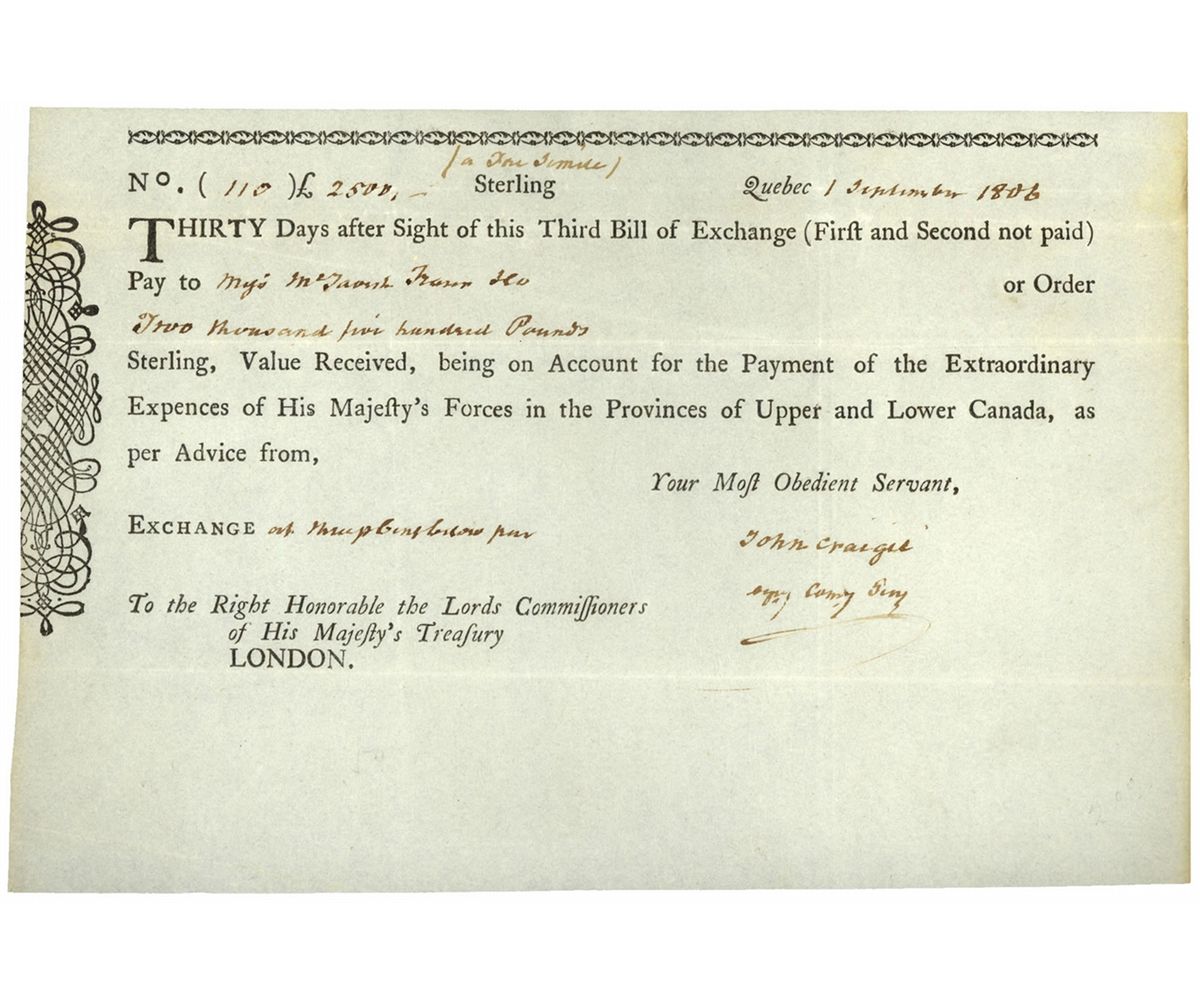 (a Fac Simile)
No. ( 110 )£ 2500,- Sterling Quebec 1 September 1806
THIRTY Days after Sight of this Third Bill of Exchange (Firſt and Second not paid)
Pay to Meſſs McTavish Fraser &Co or Order
Two thousand five hundred Pounds
Sterling, Value Received, being on Account for the Payment of the Extraordinary
Expences of His Majeſty's Forces in the Provinces of Upper and Lower Canada, as
per Advice from,
Your Moſt Obedient Servant,
EXCHANGE at three p Cent below par
John Craigie
Comy Genl
To the Right Honorable the Lords Commiſſioners
of His Majeſty's Treaſury
LONDON.